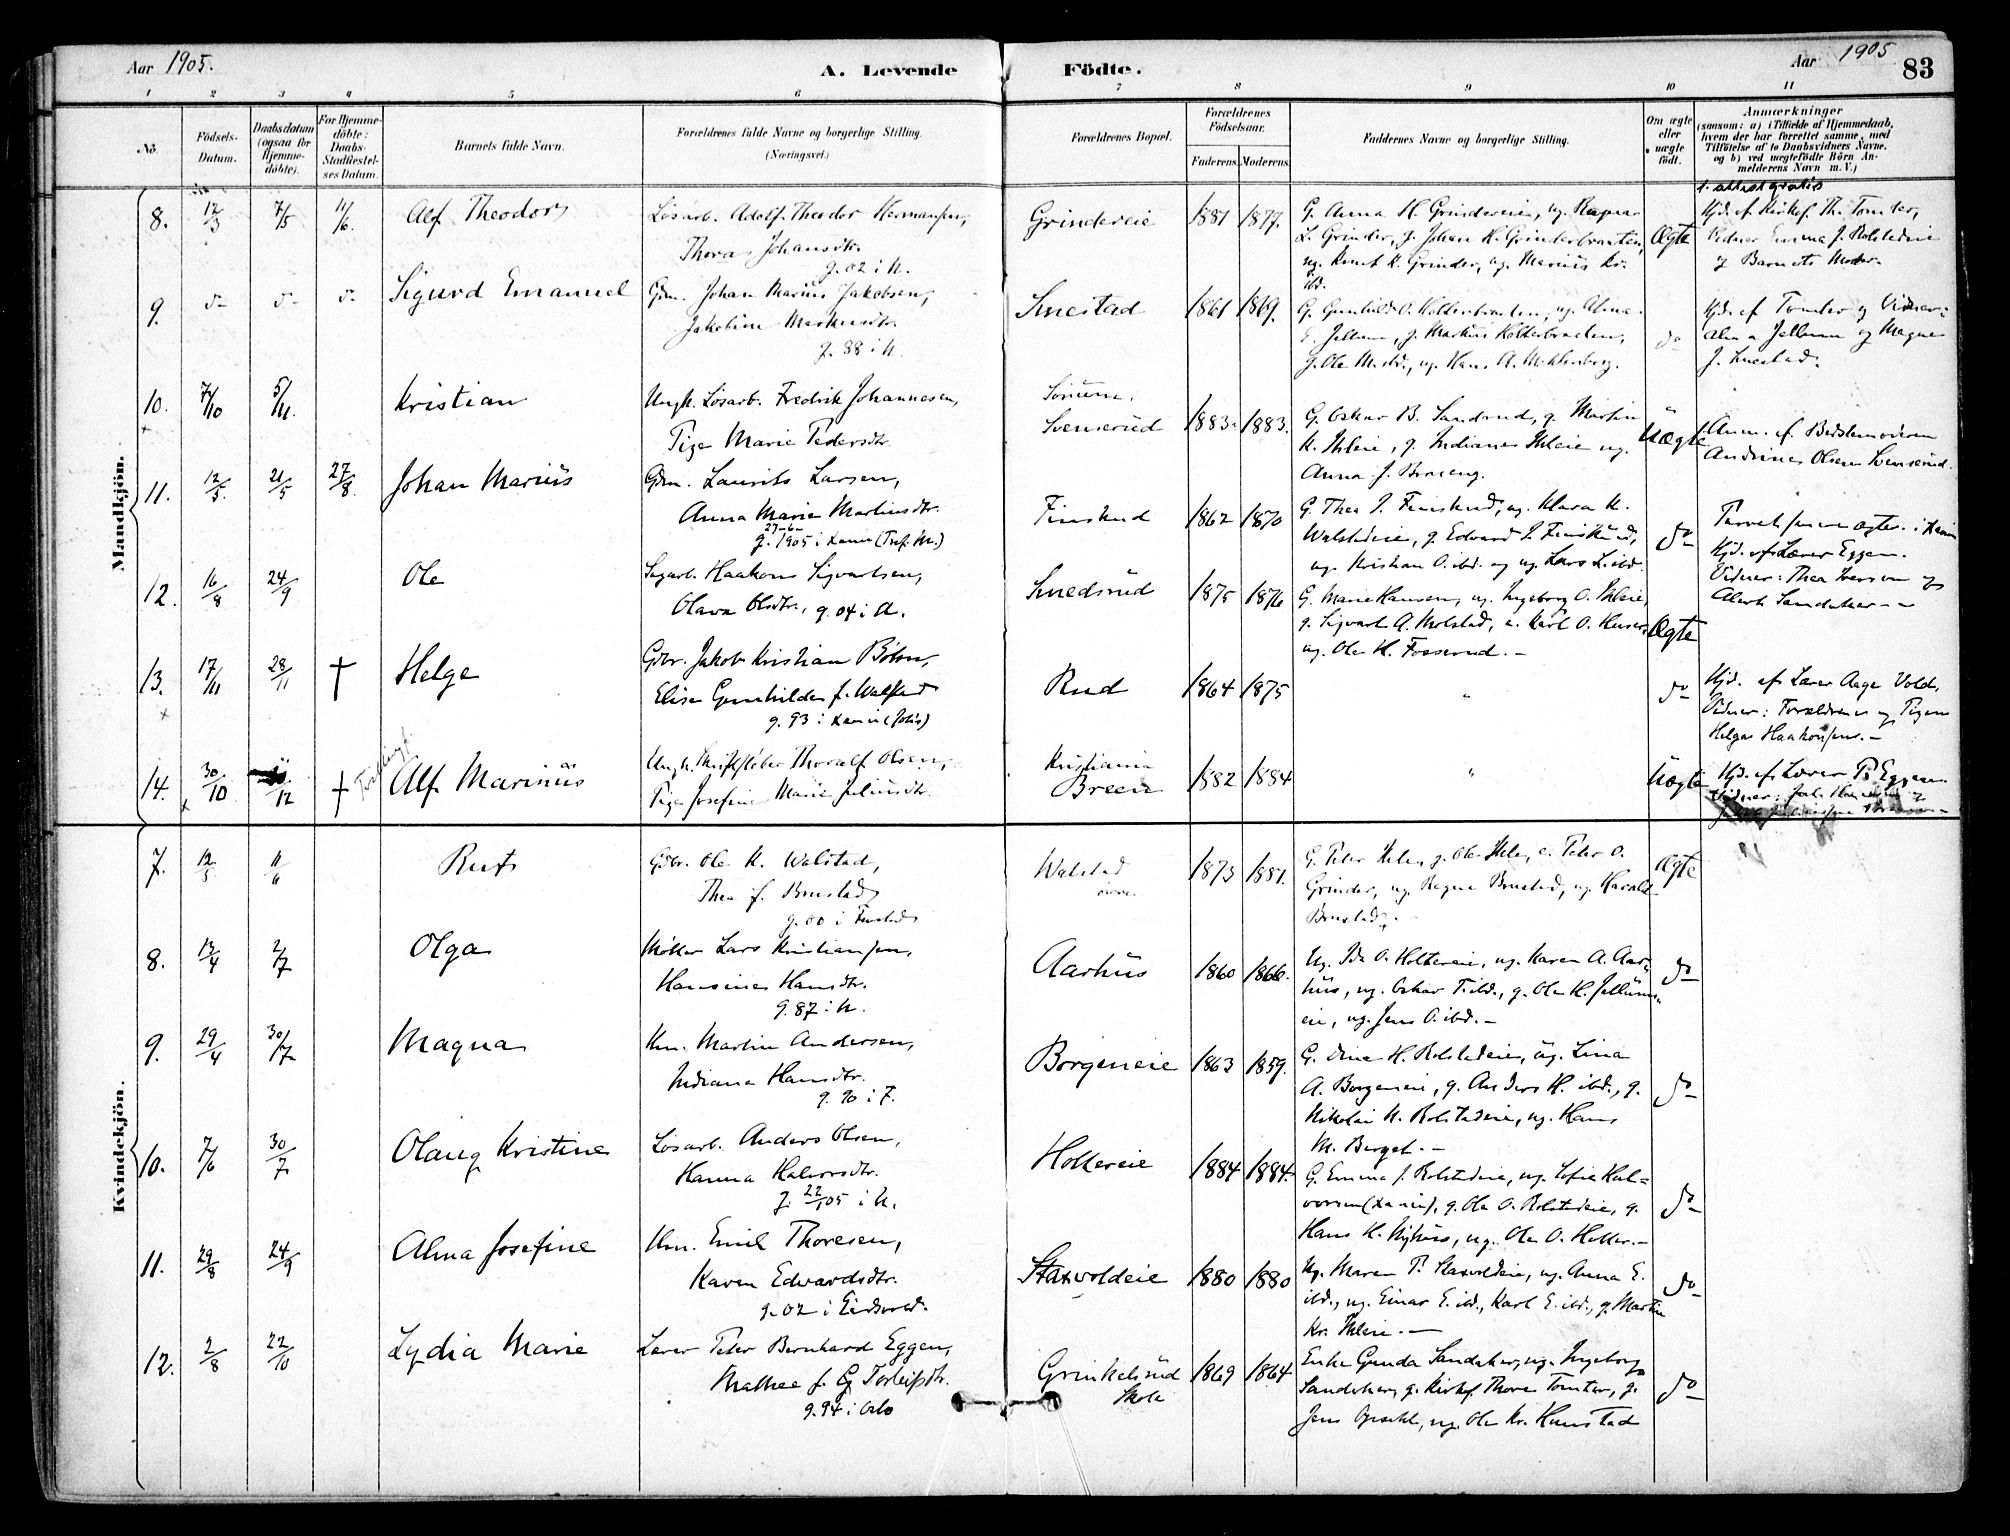 Aar 1905.
A. Levende Fødte.
Aar 1905
83
1 2 3 4 5 6 7 8 9 10 11
No.
Fødsels-Datum.
Daabsdatum (ogsaa for Hjemmedøbte).
For Hjemmedøbte: Daabs-Stadfæstelses Datum.
Barnets fulde Navn.
Forældrenes fulde Navne og borgerlige Stilling.
(Næringsvei.)
Forældrenes Bopæl.
Forældrenes Fødselsaar.
Faderens. Moderens.
Faddernes Navne og borgerlige Stilling.
Om ægte eller uægte født.
Anmærkninger
(saasom: a) i Tilfælde af Hjemmedaab, hvem der har forrettet samme, med Tilføielse af to Daabsvidners Navne, og b) ved uægtefødte Børn Anmelderens Navn m. V.)
Mandkjøn.
1. attest gratis
8. 12/3 7/5 11/6. Alf Theodor
Løsarb. Adolf Theodor Hermansen,
Thora Johansdtr.
g. 02 i N.
Grindereie 1881 1877.
G. Anna H. Grindereie, ug. Ragnar
L. Grinder, g. Johan K. Grinderbraaten,
ug. Knut K. Grinder, ug. Marius Kr.
ibd.
Ægte
Hjd. af Kirkes. Th. Tomter,
Vidner Emma J. Rolstadeie
og Barnets Moder.
9. do do do Sigurd Emanuel
Gdm. Johan Marius Jakobsen,
Jakobine Markusdtr.
g. 88 i N.
Snestad 1861 1869.
G. Gunhild O. Holterbraaten, ug. Alma
E. Jellum, g. Markus Holterbraaten,
g. Ole M. ibd., ug. Hans A. Meklenborg.
do
Hjd. af Tomter og Vidner:
Alma Jellum og Magne
J. Snestad.
10. 7/10 5/11. Kristian
Ungk. Løsarb. Fredrik Johannesen,
Pige Marie Pedersdtr.
Sørum.
Svenserud 1883. 1883.
G. Oskar B. Sandrud, g. Martin
K. Ihleie, g. Indianes Ihleie ug.
Anna J. Braaeng.
Uægte
Anm. af Bedstemoderen
Andrine Olsen Svenserud.
11. 12/5. 21/5 27/8. Johan Marius
Gdm. Laurits Larsen,
Anna Marie Martinsdtr.
27-6-
g. 1905 i Xania (Tref. M.)
Finstad 1862 1870
G. Thea L. Finstad, ug. Klara K.
Walstadeie, g. Edvard L. Finstad,
ug. Kristian O. ibd. og ug. Lars L. ibd.
do
Hjd. af Lærer Eggen.
Vidner: Thea Iversen og
12. 16/8 24/9 Ole
Sagarb. Haakon Sigvartsen,
Olava Olsdtr., g. 04 i N.
Smedsrud 1875 1876
G. Marie Hansen, ug. Ingeborg O. Ihleie,
g. Sigvart A. Molstad, e. Karl O. Huser,
ug. Ole H. Fosserud. -
Ægte
13. 17/11 28/11 † Helge
Gdbr. Jakob Kristian Bøhn,
Elise Gunhilda f. Walstad
g. 93 i Xania (Johs)
Rud 1864 1875
"
do
Hjd. af Lærer Aage Vold,
Vidner: Forældrene og Pigen
Helga Haakonsen. -
14. 30/10 /12 † Alf Marinius
Ungk. Skriftstøber Thoralf Olsen,
Pige Josefine Marie Juliusdtr.
Kristiania
Breen 1882 1884
"
Uægte
Hjd. af Lærer P. Eggen
Vidner:
Kvindekjøn.
7. 12/5 11/6 Rut
Gdbr. Ole K. Walstad,
Thea f. Brustad
g. 00 i Furstad
Walstad
øvre 1873 1881.
G. Peter Ihle, g. Ole Ihle, e. Peter O.
Grinder, ug. Ragna Brustad, ug. Harald
Brustad. -
Ægte
8. 13/4 2/7 Olga
Møller Lars Kristiansen,
Hansine Hansdtr.
g. 87 i N.
Aarhus 1860 1866.
Ug. Ida O. Holtereie, ug. Karen A. Aar-
hus, ug. Oskar T. ibd., g. Ole K. Jellums-
eie, ug. Jens O. ibd. -
do
9. 29/4 30/7 Magna
Hm. Martin Andersen,
Indiana Hansdtr.
g. 90 i F.
Borgeneie 1863 1859.
G. Dina H. Rolstadeie, ug. Lina
A. Borgeneie, g. Anders H. ibd., g.
Nikolai N. Rolstadeie, ug. Hans
M. Berget. -
do
10. 7/6 30/7 Olaug Kristine
Løsarb. Anders Olsen,
Hanna Halvorsdtr.
g. 22/1 05 i N.
Holtereie 1884 1884.
G. Emma J. Rolstadeie, ug. Sofie Hal-
vorsen (Xania), g. Ole O. Rolstadeie, g.
Hans K. Nyhus, ug. Ole O. Holter. -
do
11. 29/8 24/9 Alma Josefine
Hm. Emil Thoresen,
Karen Edvardsdtr.
g. 02 i Eidsvold.
Staxvoldeie 1880 1880
Ug. Maren P. Staxvoldeie, ug. Anna E.
ibd., ug. Einar E. ibd., Karl E. ibd., g. Martin
Kr. Ihleie. -
do
12. 2/8 22/10 Lydia Marie
Lærer Peter Bernhard Eggen,
Mathea f. G. Torleifsdtr.
g. 94 i Oslo
Grinkelsrud
Skole 1869 1864
Enke Gunda Sandaker, ug. Ingeborg
Sandaker, g. Kirkes. Thore Tomter, g.
Jens Opsahl, ug. Ole Kr. Hunstad
do